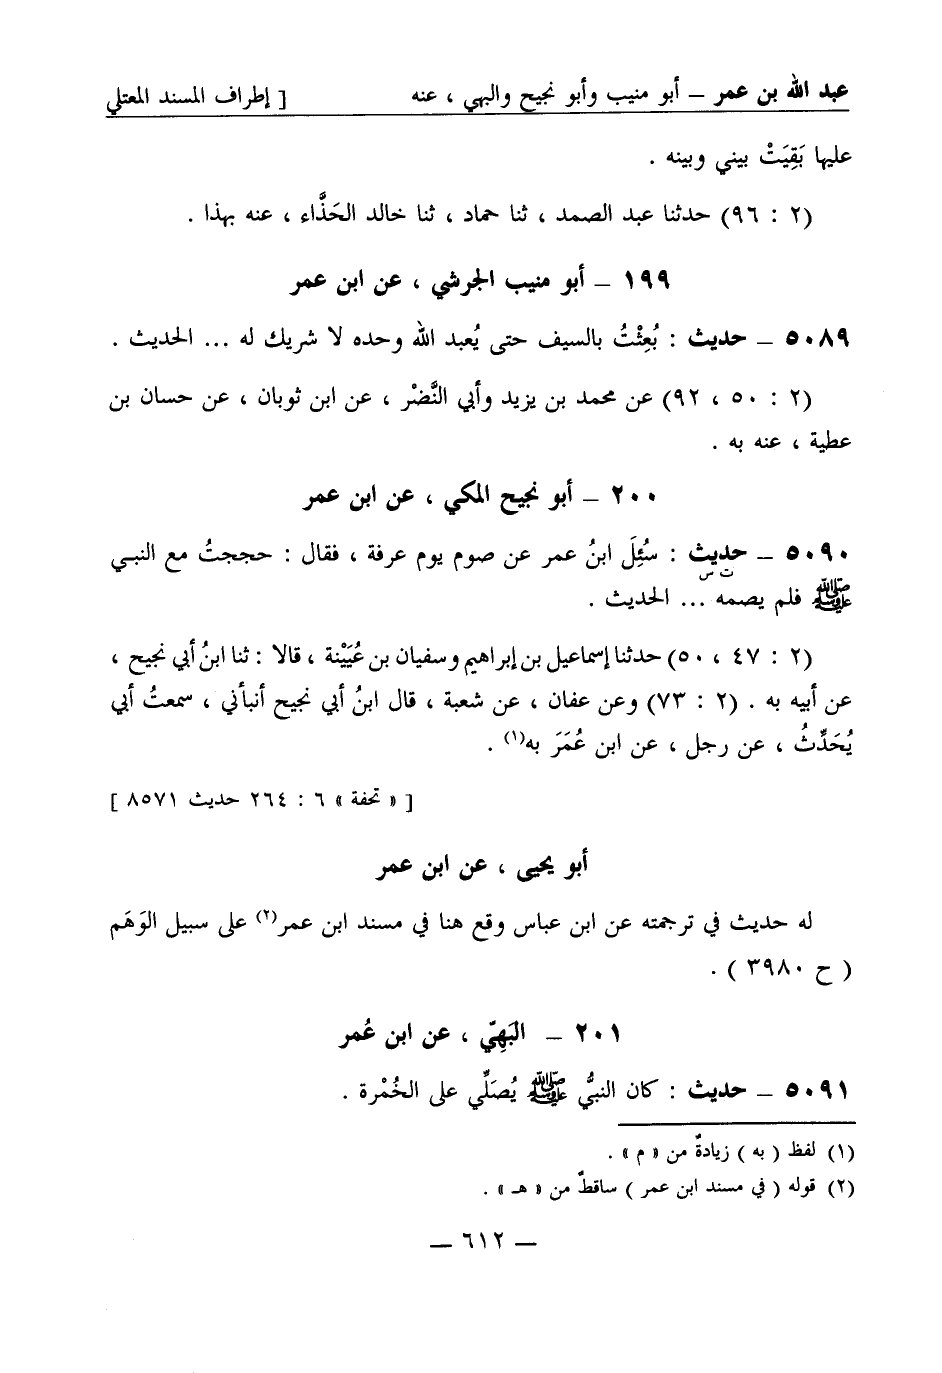 عبد الله بن عمر – أبو منيب وأبو نجيح والبهي ، عنه [ إطراف المسند المعتلي
عليها بَقِيَتْ بيني وبينه .
(٢ : ٩٦) حدثنا عبد الصمد ، ثنا حماد ، ثنا خالد الحَذَّاء ، عنه بهذا .
١٩٩ – أبو منيب الجرشي ، عن ابن عمر
٥٠٨٩ – حديث : بُعِثْتُ بالسيف حتى يُعبد الله وحده لا شريك له ... الحديث .
(٢ : ٥٠ ، ٩٢) عن محمد بن يزيد وأبي النَّضْر ، عن ابن ثوبان ، عن حسان بن
عطية ، عنه به .
٢٠٠ – أبو نجيح المكي ، عن ابن عمر
٥٠٩٠ – حديث : سُئِلَ ابنُ عمر عن صوم يوم عرفة ، فقال : حججتُ مع النبي
ت س
ﷺ فلم يصمه ... الحديث .
(٢ : ٤٧ ، ٥٠) حدثنا إسماعيل بن إبراهيم وسفيان بن عُيَيْنة ، قالا : ثنا ابنُ أبي نجيح ،
عن أبيه به . (٢ : ٧٣) وعن عفان ، عن شعبة ، قال ابنُ أبي نجيح أنبأني ، سمعتُ أبي
يُحَدِّثُ ، عن رجل ، عن ابن عُمَرَ به(١) .
[ « تحفة » ٦ : ٢٦٤ حديث ٨٥٧١ ]
أبو يحيى ، عن ابن عمر
له حديث في ترجمته عن ابن عباس وقع هنا في مسند ابن عمر(٢) على سبيل الوَهَم
( ح ٣٩٨٠ ) .
٢٠١ – البَهِيّ ، عن ابن عُمر
٥٠٩١ – حديث : كان النبيُّ ﷺ يُصَلِّي على الخُمْرة .
(١) لفظ ( به ) زيادةٌ من « م » .
(٢) قوله ( في مسند ابن عمر ) ساقطٌ من « هـ » .
– ٦١٢ –